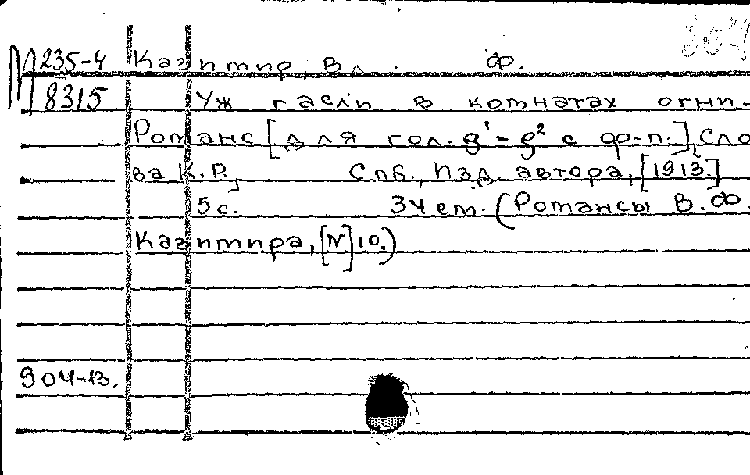 М 235-4 Казимир, Вл. Ф.
8315 Уж гасли в комнатах огни.-
Романс [для гол. g¹-g² с ф-п.], Сло
ва К.Р. Спб., Изд. автора, [1913.]
5с. 34 см. (Романсы В. Ф.
Казимира, [№] 10.)
904-13.